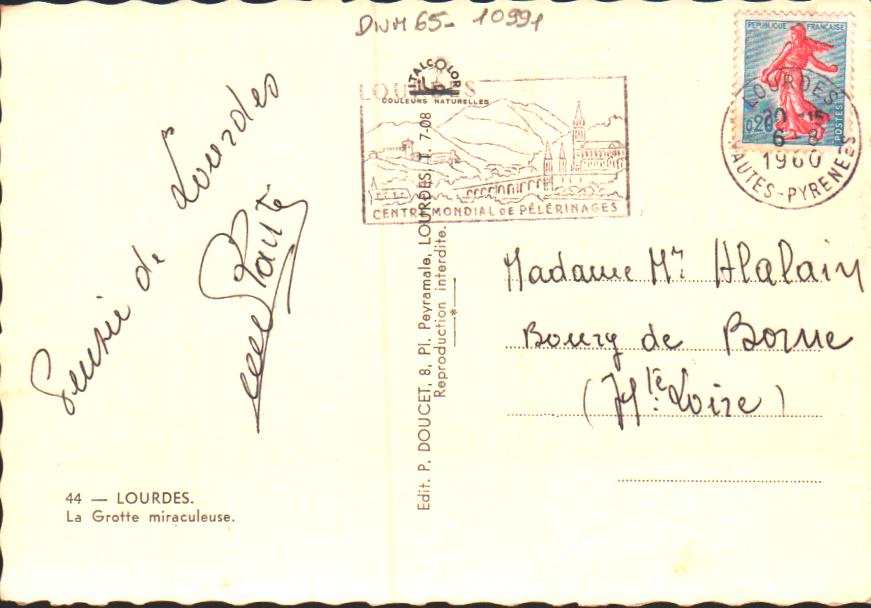 DIVM 65- 10991
REPUBLIQUE FRANÇAISE
0,20
POSTES
LOURDES
20-15
6-8
1960
HAUTES-PYRENEES
LOURDES
ITALCOLORE
COULEURS NATURELLES
CENTRE MONDIAL DE PÈLERINAGES
Pensée de Lourdes
Madame Mr Alalain
Bourg de Borne
(Hte Loire)
Edit. P. DOUCET, 8, Pl. Peyramale, LOURDES, T. 7-08
Reproduction interdite.
44 — LOURDES.
La Grotte miraculeuse.